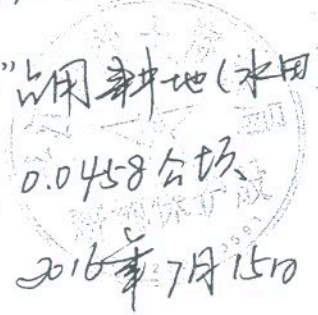 "占用耕地(水田
0.0458公顷、
2016年7月15日